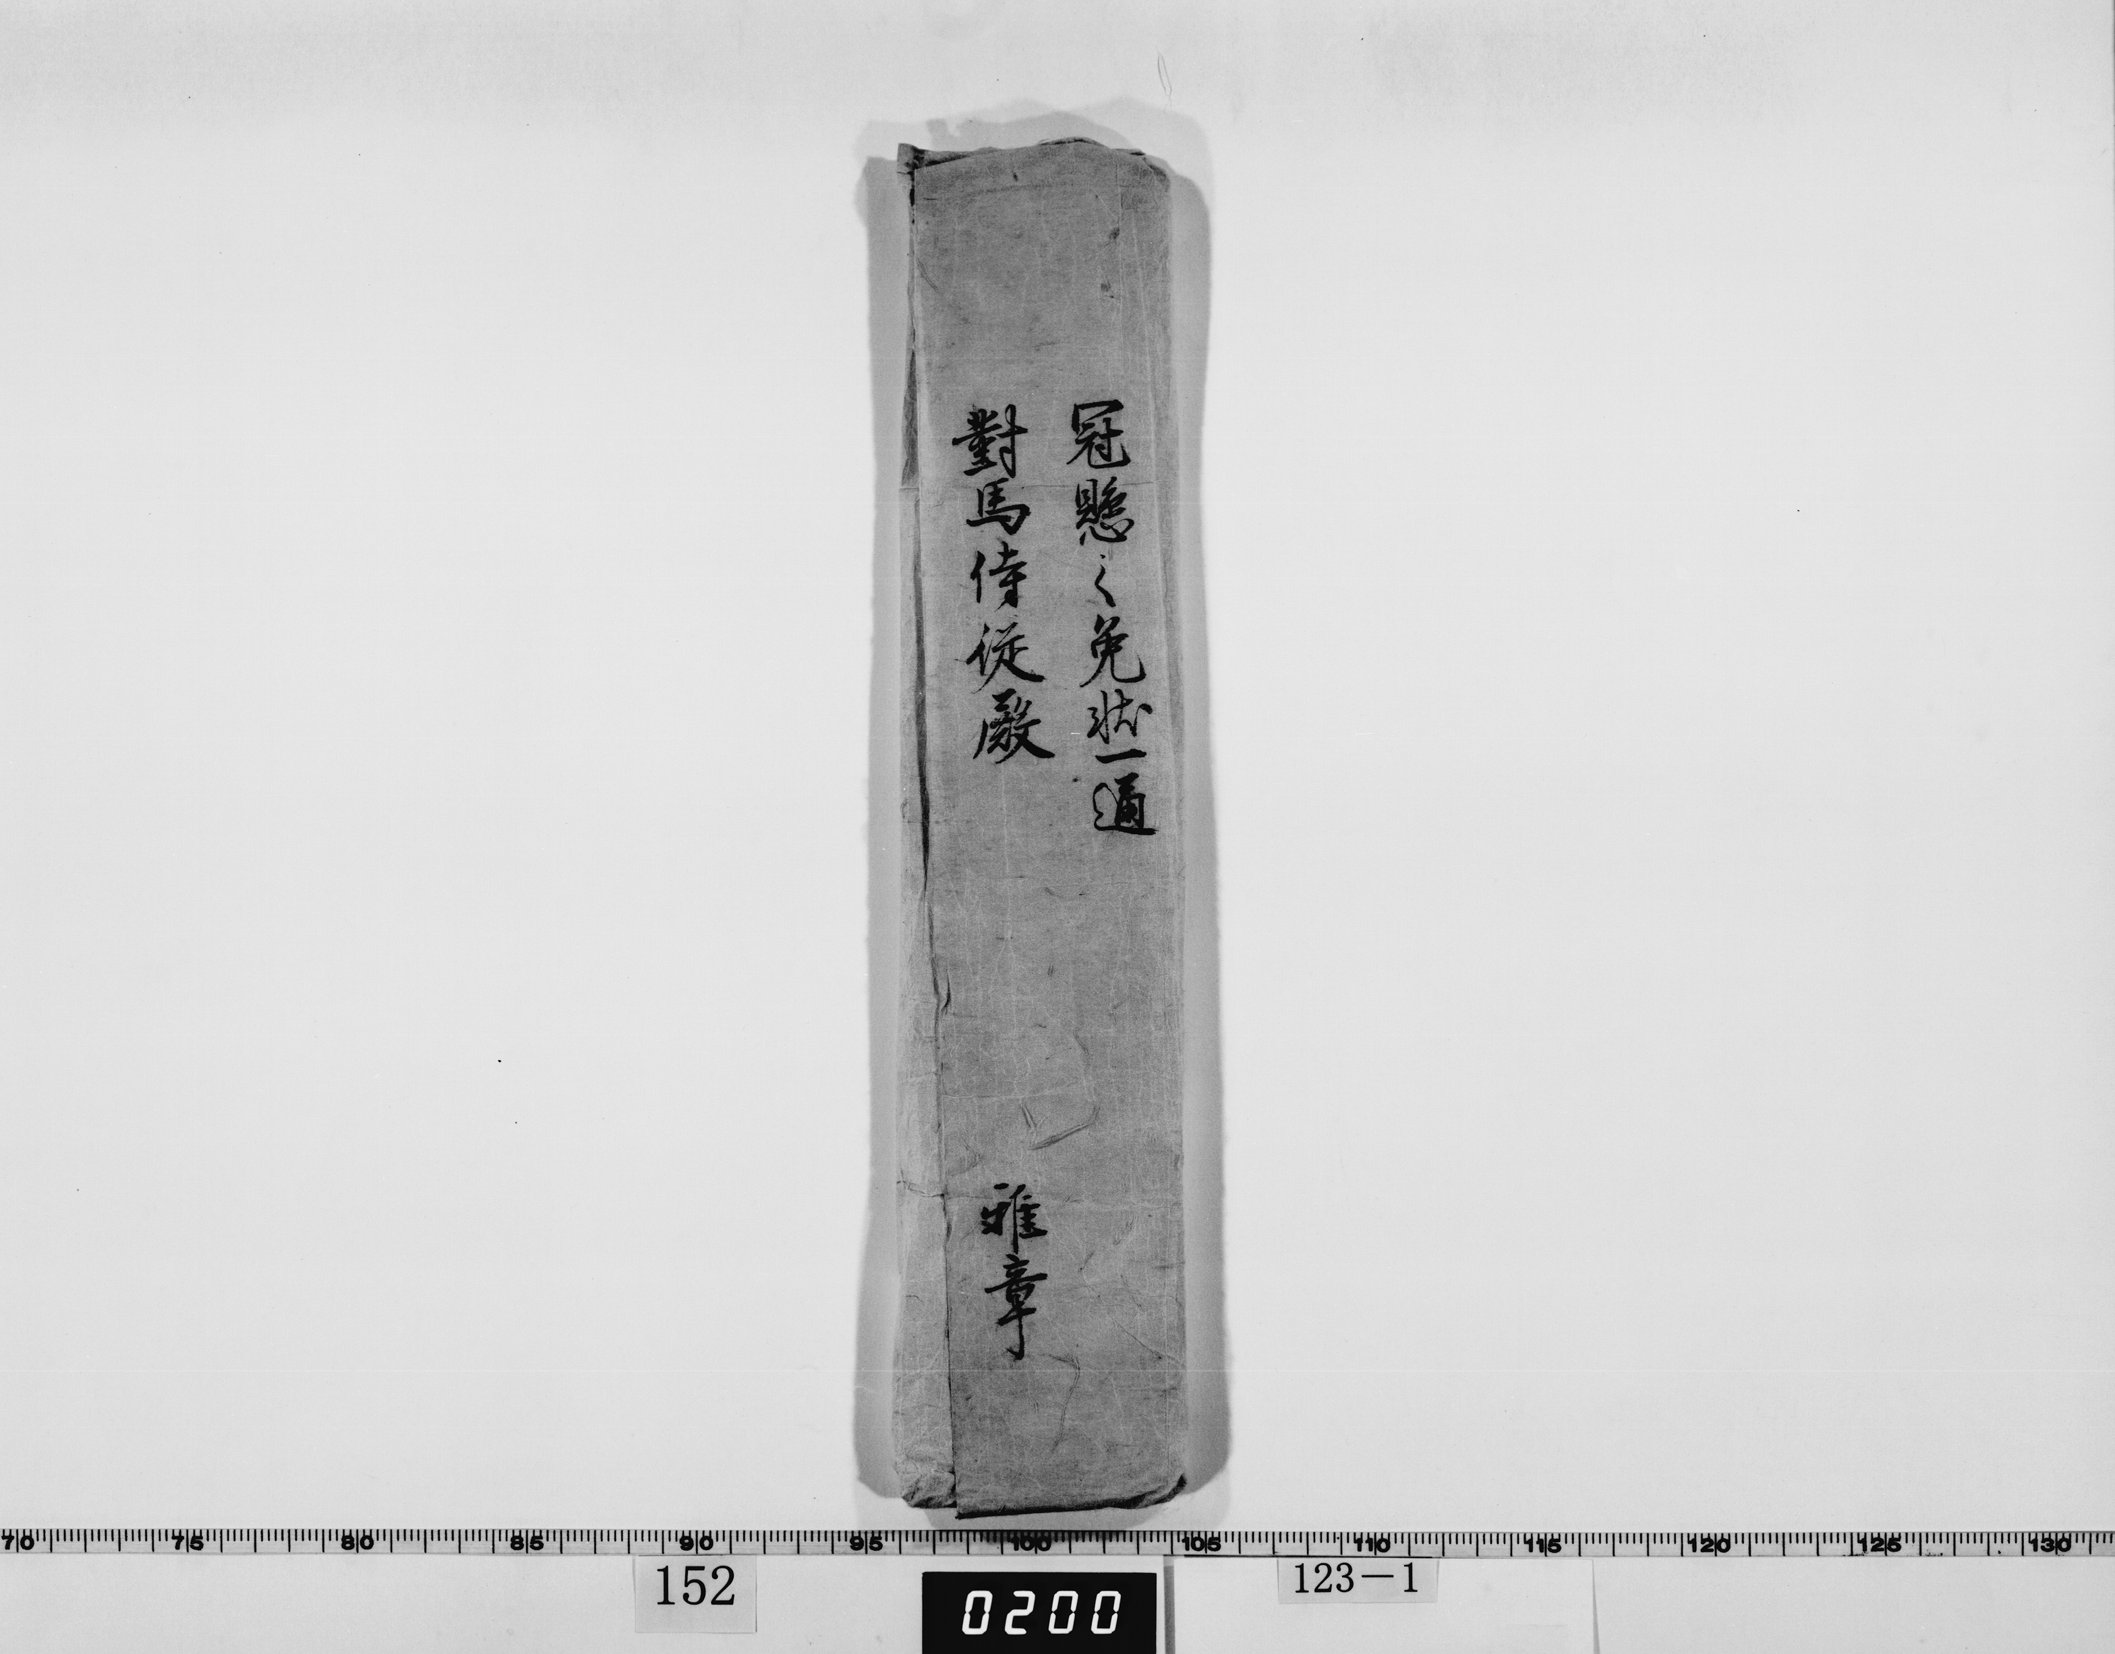 冠懸之免状一通
對馬侍従殿
雅章
70 75 80 85 90 95 100 105 110 115 120 125 130
152
0200
123-1